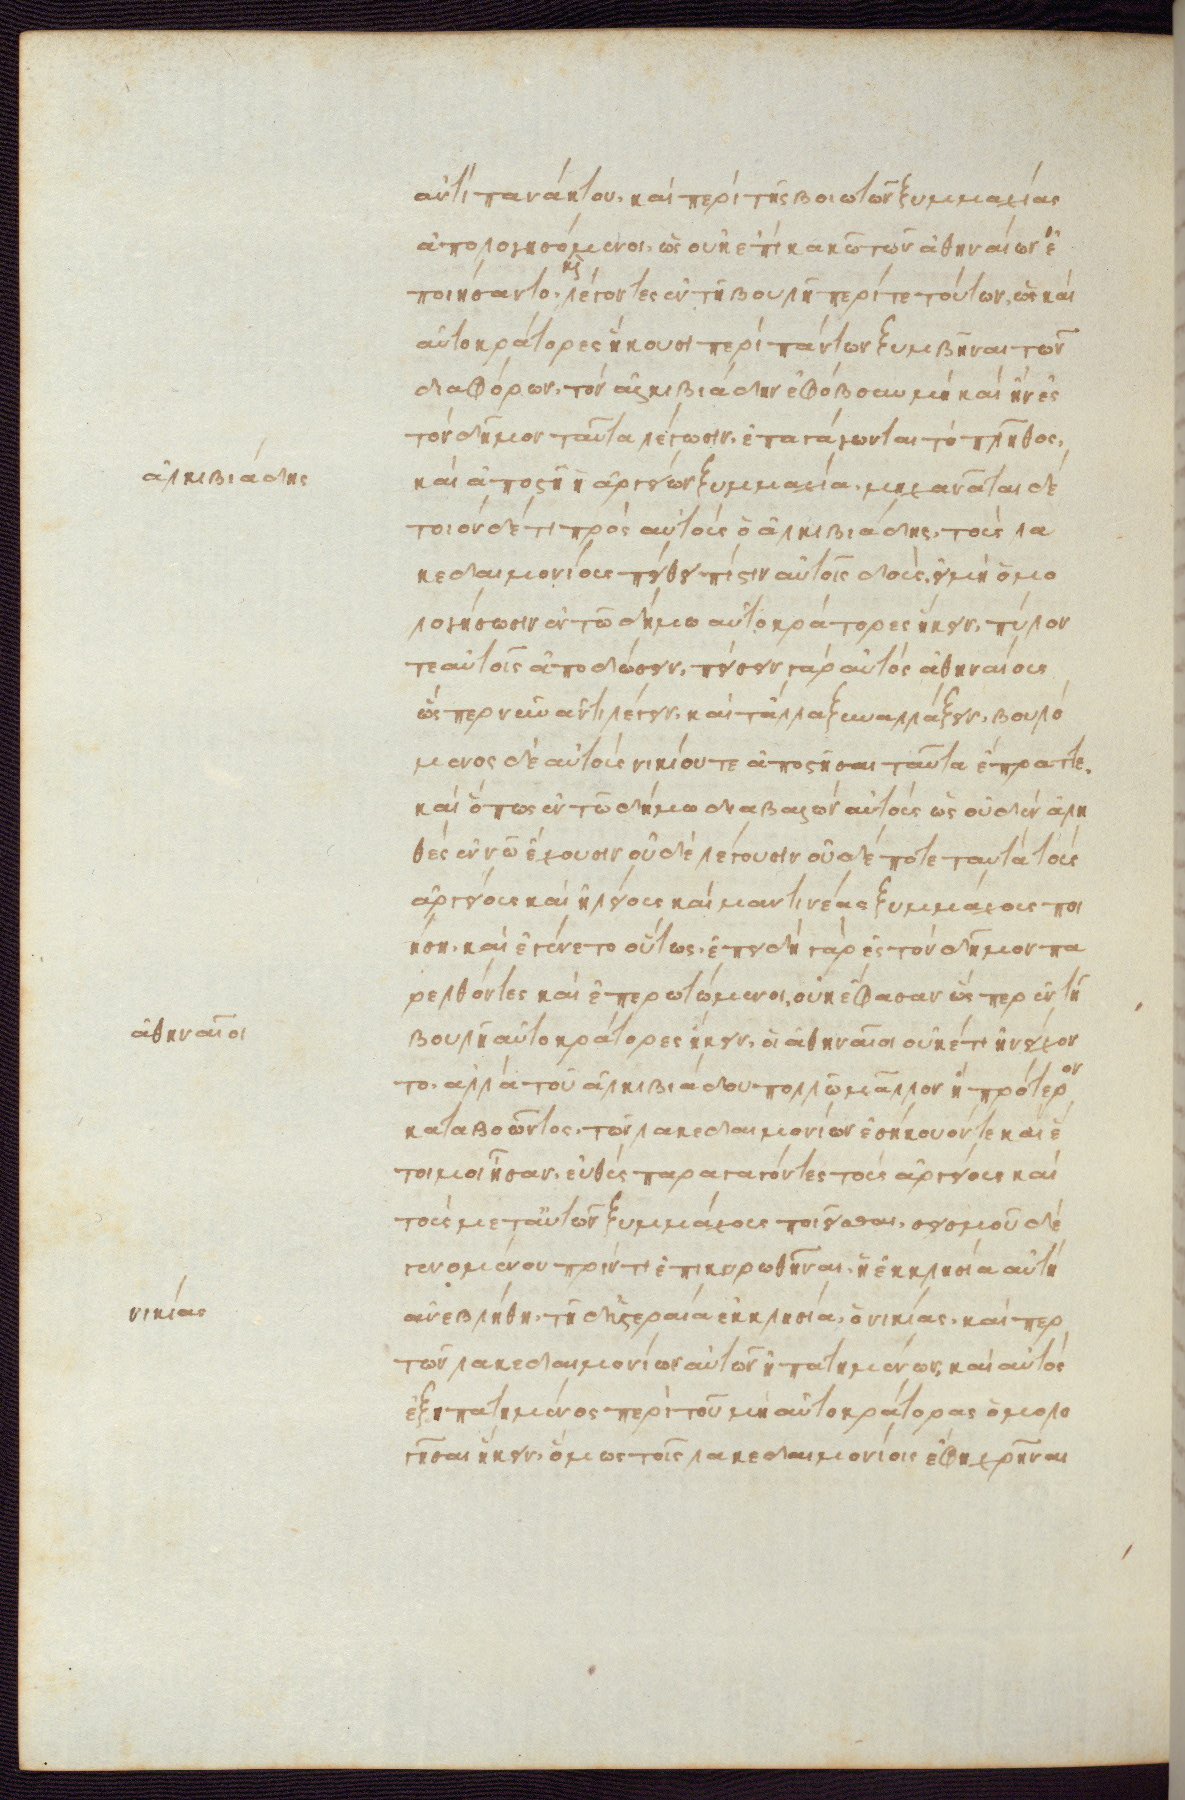 ἀντὶ πανάκτου. καὶ περὶ τῆς βοιωτῶν ξυμμαχίας
ἀπολογησόμενοι. ὡς οὐκ ἐπὶ κακῶ τῶν ἀθηναίων ἐ
ποιήσαντο. κ̀ λέγοντες ἐν τῆ βουλῆ περί τε τούτων, ὡς καὶ
αὐτοκράτορες ἥκουσι περὶ πάντων ξυμβῆναι τῶν
διαφόρων. τὸν ἀλκιβιάδην ἐφόβουν μὴ καὶ ἢν ἐς
τὸν δῆμον ταῦτα λέγωσιν. ἐπαγάγωνται τὸ πλῆθος,
ἀλκιβιάδης
καὶ ἀπωσθῆ ἡ ἀργείων ξυμμαχία. μηχανᾶται δὲ
τοιόνδέ τι πρὸς αὐτοὺς ὁ ἀλκιβιάδης. τοὺς λα
κεδαιμονίους πείθει πίστιν αὐτοῖς δοὺς, εἰ μὴ ὁμο
λογήσωσιν ἐν τῶ δήμω αὐτοκράτορες ἥκειν. πύλον
τε αὐτοῖς ἀποδώσειν. πείσειν γὰρ αὐτὸς ἀθηναίους
ὥσπερ νῦν ἀντιλέγειν. καὶ τἄλλα ξυναλλάξειν. βουλό
μενος δὲ αὐτοὺς νικίου τε ἀποστῆσαι ταῦτα ἔπραττε.
καὶ ὅπως ἐν τῶ δήμω διαβαλὼν αὐτοὺς ὡς οὐδὲν ἀλη
θὲς ἐν νῶ ἔχουσιν οὐδὲ λέγουσιν οὐδέποτε ταυτὰ τοὺς
ἀργείους καὶ ἠλείους καὶ μαντινέας ξυμμάχους ποι
ήση. καὶ ἐγένετο οὕτως. ἐπειδὴ γὰρ ἐς τὸν δῆμον πα
ρελθόντες καὶ ἐπερωτώμενοι, οὐκ ἔφασαν ὥσπερ ἐν τῆ
ἀθηναῖοι
βουλῆ αὐτοκράτορες ἥκειν. οἱ ἀθηναῖοι οὐκέτι ἠνείχον
το. ἀλλὰ τοῦ ἀλκιβιάδου πολλῶ μᾶλλον ἢ πρότερον
καταβοῶντος. τῶν λακεδαιμονίων ἐσήκουόν τε καὶ ἑ
τοιμοι ἦσαν. εὐθὺς παραγαγόντες τοὺς ἀργείους καὶ
τοὺς μετ αὐτῶν ξυμμάχους ποιεῖσθαι. σεισμοῦ δὲ
γενομένου πρίν τι ἐπικυρωθῆναι. ἡ ἐκκλησία αὐτὴ
νικίας
ἀνεβλήθη. τῆ δ ὑστεραία ἐκκλησία, ὁ νικίας. καίπερ
τῶν λακεδαιμονίων αὐτῶν ἠπατημένων, καὶ αὐτὸς
ἐξηπατημένος περὶ τοῦ μὴ αὐτοκράτορας ὁμολο
γῆσαι ἥκειν. ὅμως τοῖς λακεδαιμονίοις ἔφη χρῆναι